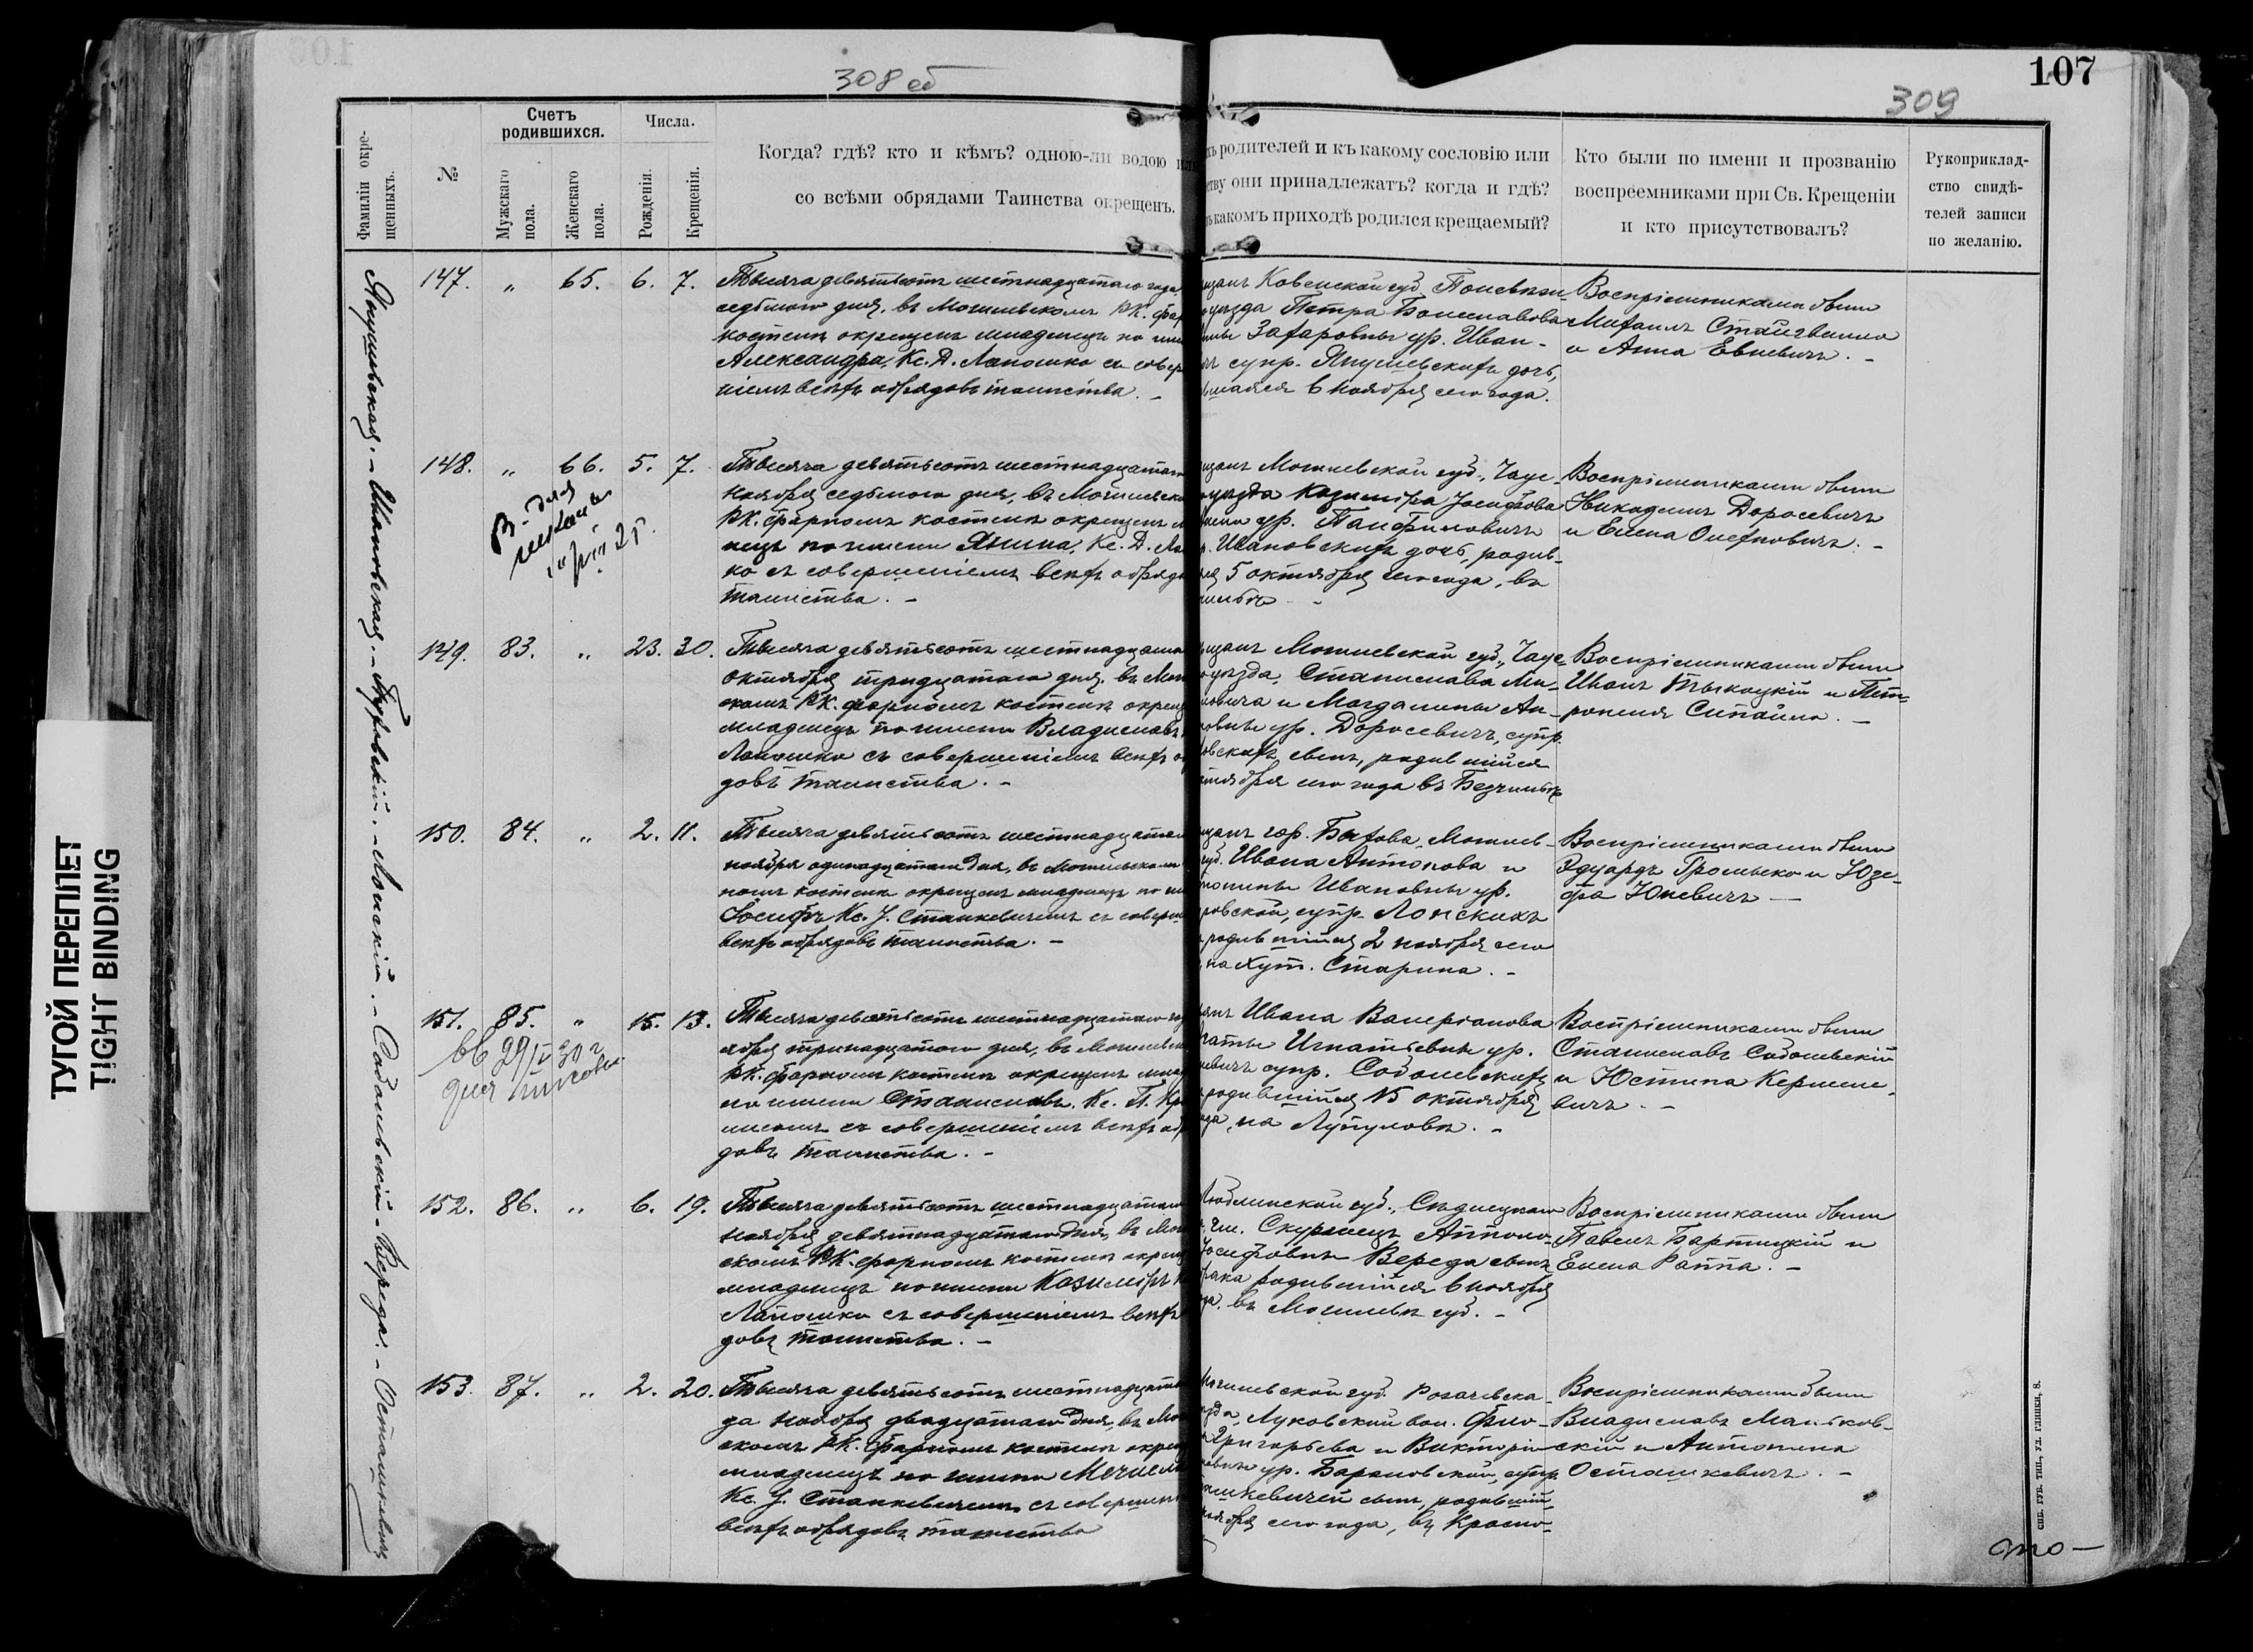 308 об
107
309
Фамиліи окре-
щенныхъ.
№
Счетъ
родившихся.
Мужскаго
пола.
Женскаго
пола.
Числа.
Рожденія.
Крещенія.
Когда? гдѣ? кто и кѣмъ? одною-ли водою или
со всѣми обрядами Таинства окрещенъ.
хъ родителей и къ какому сословію или
ству они принадлежатъ? когда и гдѣ?
ъ какомъ приходѣ родился крещаемый?
Кто были по имени и прозванію
воспреемниками при Св. Крещеніи
и кто присутствовалъ?
Рукоприклад-
ство свидѣ-
телей записи
по желанію.
Янушевская. - Ивановская. - - Лонскій. - Соболевскій. - Вереда. - Осташкевичъ
147. " 65. 6. 7.
Тысяча девятьсотъ шестнадцатаго года
седьмого дня, въ Могилевскомъ РК. фар
костелѣ окрещенъ младенецъ по име
Александра, Кс. Д. Лапошко съ совер
ніемъ всѣхъ обрядовъ таинства. -
щанъ Ковенской губ. Поневѣж-
уѣзда Петра Болеславова
Захаровны ур. Иван-
супр. Янушевскихъ дочь,
вшаяся 6 ноября сего года.
Воспріемниками были
Михаилъ
и Анна Евневичъ. -
148. " 66. 5. 7.
Тысяча девятьсотъ шестнадцатаго
ноября седьмого дня, въ Могилевско
РК. фарномъ костелѣ окрещенъ м
нецъ по имени Янина, Кс. Д. Ла
ко съ совершеніемъ всѣхъ обрядо
таинства. -
щанъ Могилевской губ., Чаус-
уѣзда Казиміра Іосифова
ур. Панфиловичъ
р. Ивановскихъ дочь, родив-
5 октября сего года, въ
Воспріемниками были
Никодимъ Доросевичъ
и Елена
149. 83. " 23. 30.
Тысяча девятьсотъ шестнадцата
октября тридцатаго дня, въ Мог
скомъ РК. фарномъ костелѣ окрещ
младенецъ по имени Владиславъ
Лапошко съ совершеніемъ всѣхъ об
довъ таинства. -
щанъ Могилевской губ., Чаус-
уѣзда, Станислава Ми-
ловича и Магдалины Ан-
новны ур. Доросевичъ, супр.
овскихъ сынъ, родившійся
ктября сего года въ
Воспріемниками были
Иванъ и Пет-
ронеля -
150. 84. " 2. 11.
Тысяча девятьсотъ шестнадцатаго
ноября одинадцатаго дня, въ Могилевскомъ
номъ костелѣ окрещенъ младенецъ по им
Іосифъ Кс. У. Станкевичемъ съ соверш
всѣхъ обрядовъ таинства. -
щанъ гор. Быхова, Могилев-
губ. Ивана Антонова и
Ивановны ур.
ровской, супр. Лонскихъ
родившійся 2 ноября сего
, на хут. Старина. -
Воспріемниками были
Эдуардъ Громыко и Юзе-
фа Юневичъ -
151. 85. " 15. 13.
29/V 30 г.
для школы
Тысяча девятьсотъ шестнадцатаго го
ября тринадцатаго дня, въ Могилевско
РК. фарномъ костелѣ окрещенъ млад
по имени Станиславъ, Кс. П.
съ совершеніемъ всѣхъ обр
довъ таинства. -
Ивана Валеріанова
Игнатьевны ур.
евичъ супр. Соболевскихъ
родившійся 15 октября
ода, на Луполовѣ. -
Воспріемниками были
Станиславъ Соболевскій
и Юстина
вичъ. -
152. 86. " 6. 19.
Тысяча девятьсотъ шестнадцатаго
ноября девятнадцатаго дня, въ Мог
скомъ РК. фарномъ костелѣ окрещ
младенецъ по имени Казиміръ К
Лапошко съ совершеніемъ всѣхъ
довъ таинства. -
Люблинской губ., Сѣдлецкаго
гм. Скуржецъ
Іосифовны Вереда сынъ
брака родившійся 6 ноября
да, въ Могилевѣ губ. -
Воспріемниками были
Павелъ Бартицкій и
Елена Раппа. -
153. 87. " 2. 20.
Тысяча девятьсотъ шестнадцата
да ноября двадцатаго дня, въ Мог
скомъ РК. фарномъ костелѣ окрещ
младенецъ по имени Мечисла
Кс. У. Станкевичемъ съ совершен
всѣхъ обрядовъ таинства
Могилевской губ. Рогачевска-
ѣзда, Луковской вол.
Григорьева и Викторіи
овны ур. Барановской, супр.
ашкевичей сынъ, родившій-
ноября сего года, въ Красно-
Воспріемниками были
Владиславъ Мацков-
скій и Антонина
Осташкевичъ. -
ТУГОЙ ПЕРЕПЛЕТ
TIGHT BINDING
СПБ. ГУБ. ТИП., УЛ. ГЛИНКИ, 8.